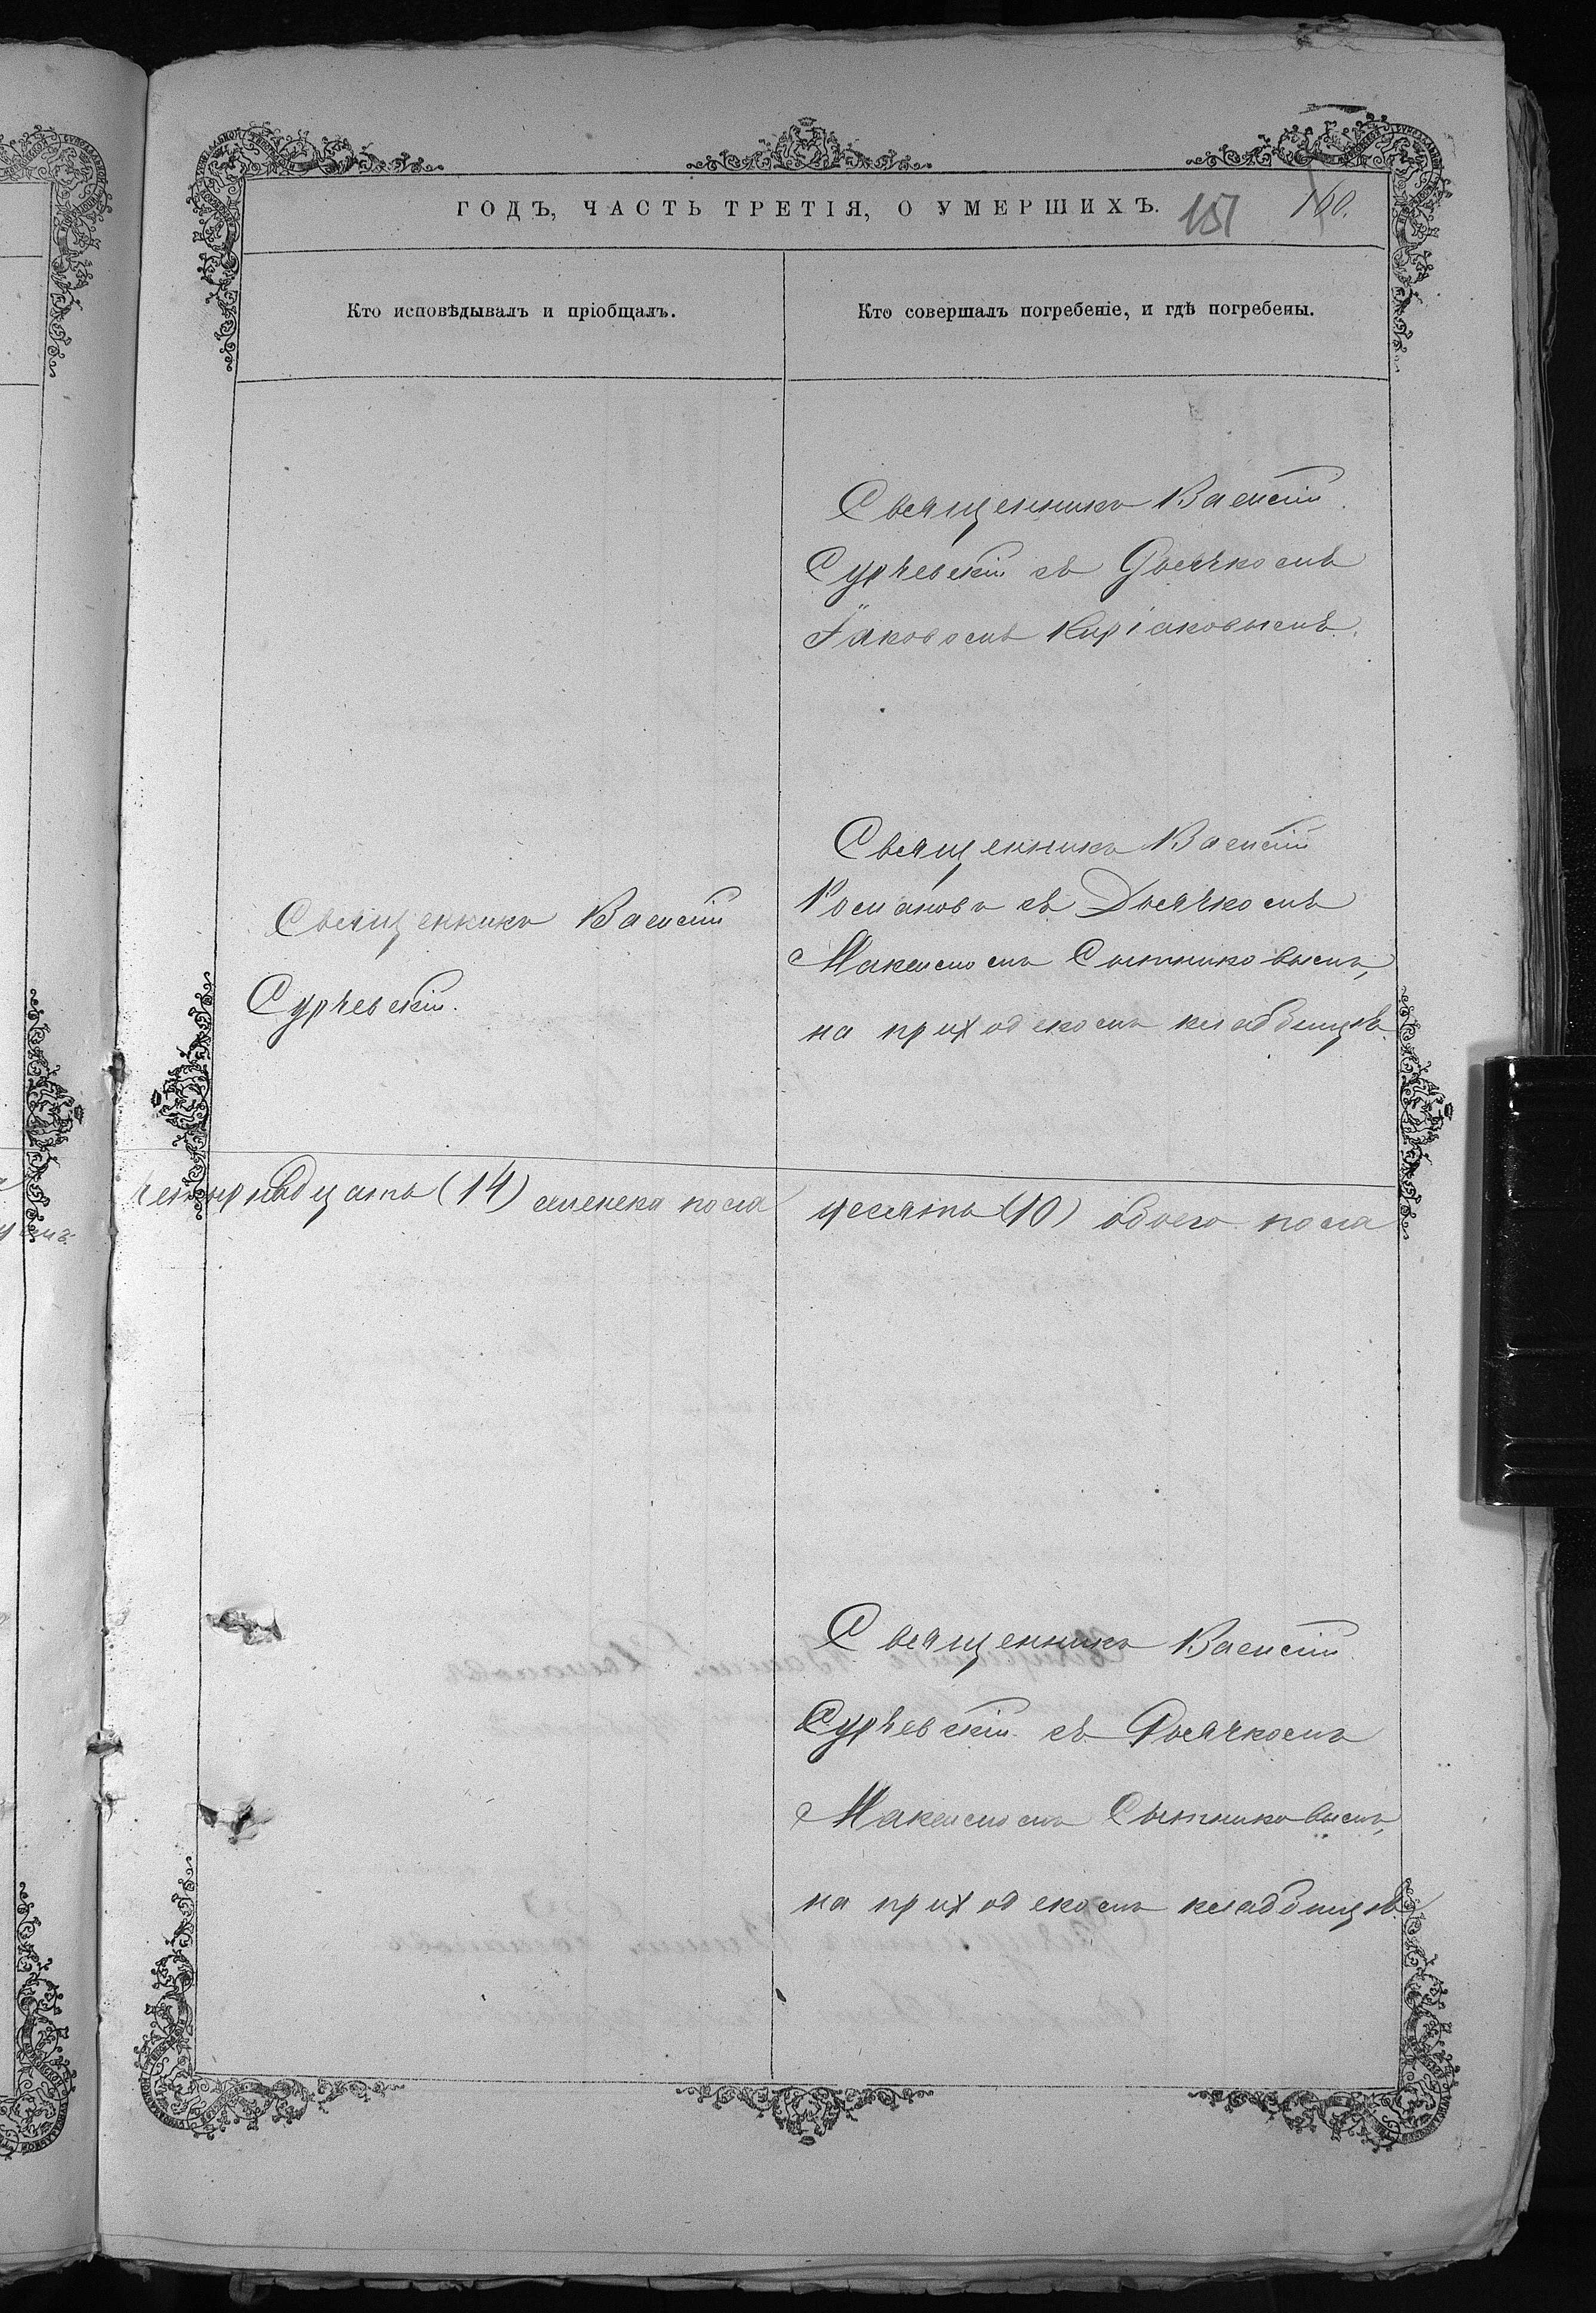 ГОДЪ, ЧАСТЬ ТРЕТІЯ, О УМЕРШИХЪ.
151 160.
Кто исповѣдывалъ и пріобщалъ.
Кто совершалъ погребеніе, и гдѣ погребены.
Священникъ Василій
Сурчевскій съ Дьячкомъ
Іаковомъ Киріаковымъ.
Священникъ Василій
Сурчевскій.
Священникъ Василій
Романовъ съ Дьячкомъ
Максимомъ Сытниковымъ,
на приходскомъ кладбищѣ.
(14) женска пола
(10) обоего пола
Священникъ Василій
Сурчевскій съ Дьячкомъ
Максимомъ Сытниковымъ,
на приходскомъ кладбищѣ